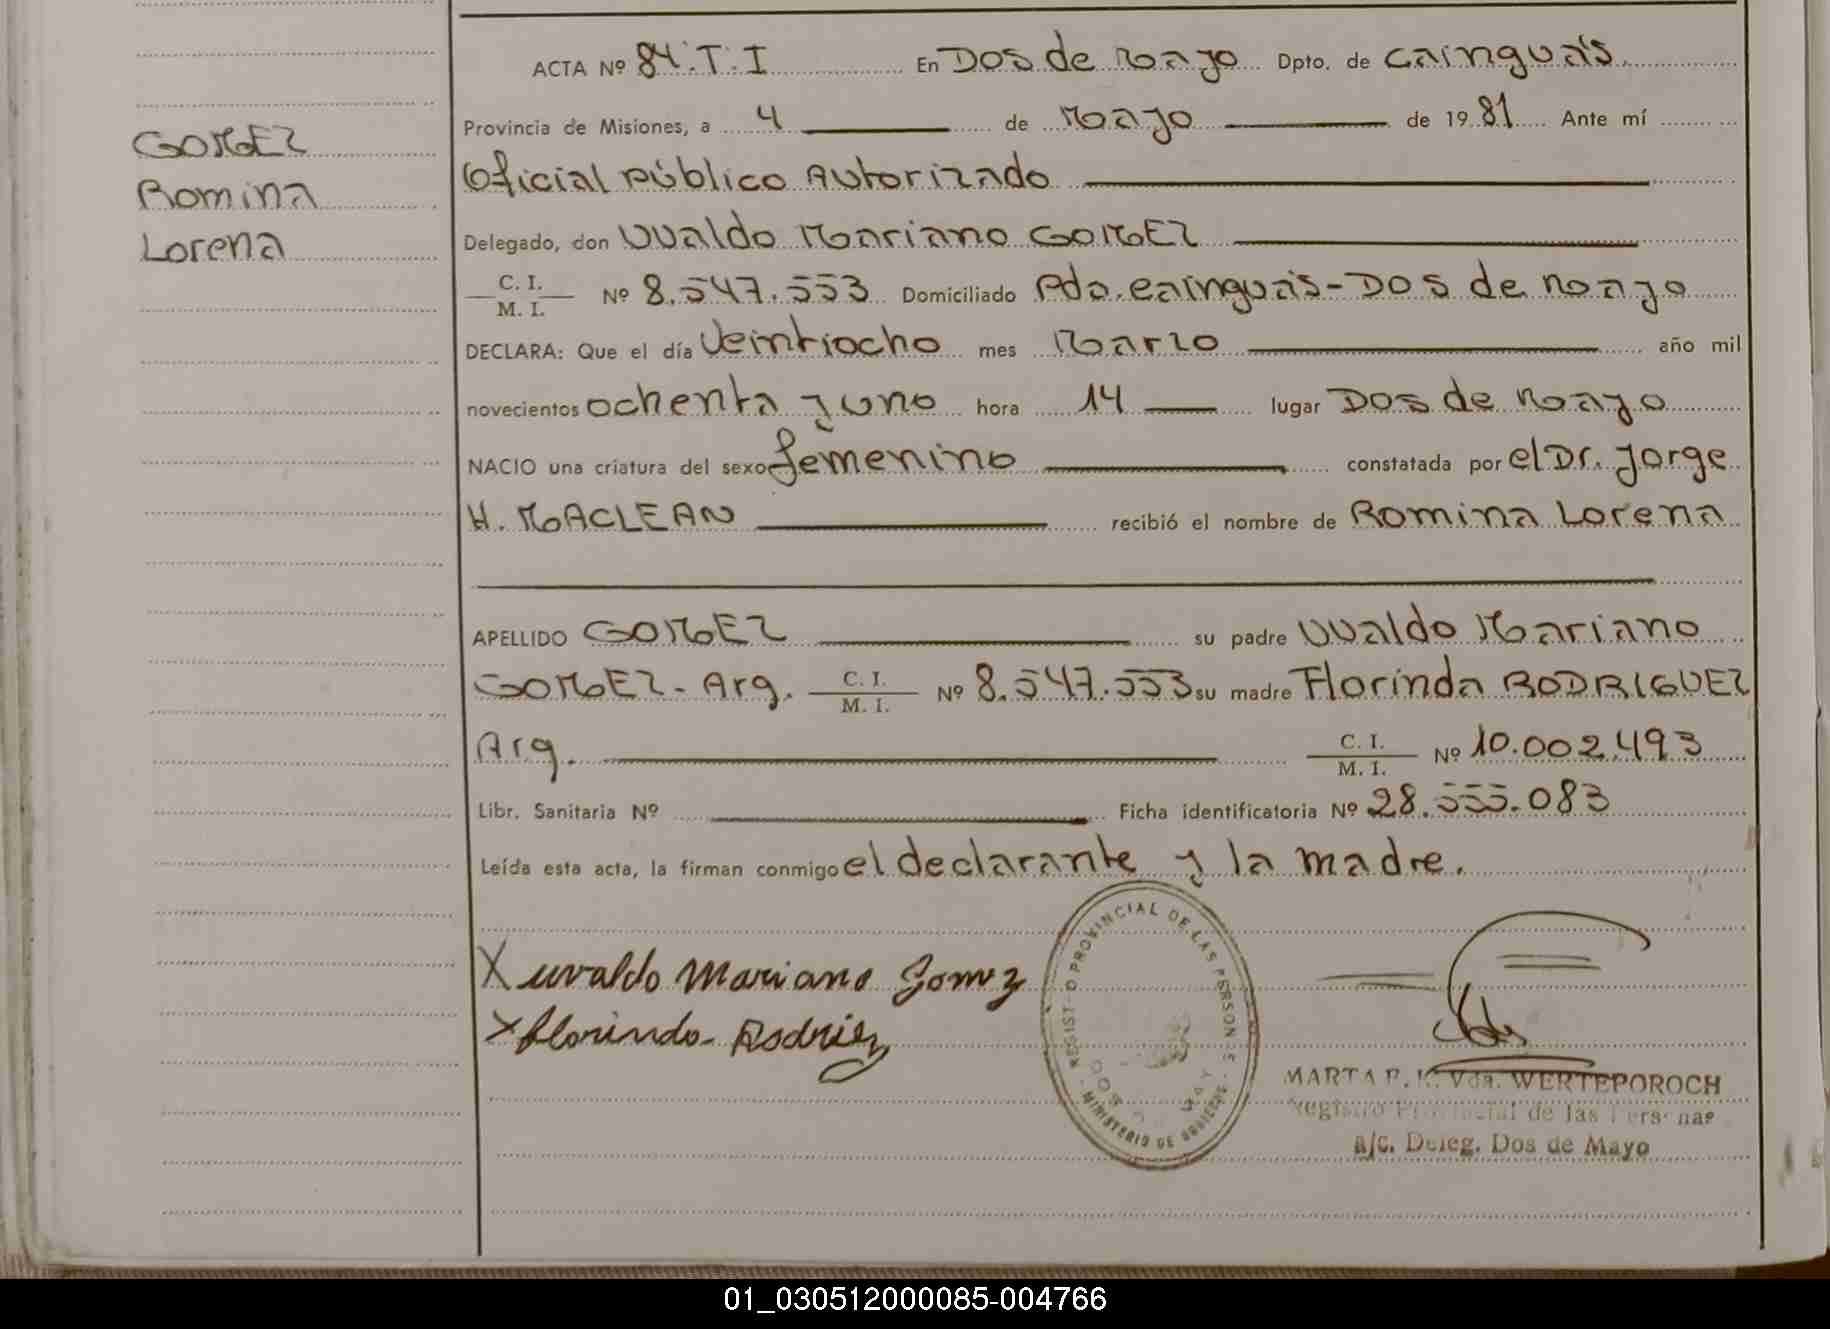 GOMEZ
Romina
Lorena
ACTA Nº 84.T.I En Dos de Mayo Dpto. de Cainguás
Provincia de Misiones, a 4 de Mayo de 1981 Ante mí
Oficial Público Autorizado
Delegado, don Uvaldo Mariano GOMEZ
C. I. / M. I. Nº 8.547.553 Domiciliado Pdo. Cainguás-Dos de Mayo
DECLARA: Que el día Veintiocho mes Marzo año mil
novecientos ochenta y uno hora 14 lugar Dos de Mayo
NACIO una criatura del sexo femenino constatada por el Dr. Jorge
H. MACLEAN recibió el nombre de Romina Lorena
APELLIDO GOMEZ su padre Uvaldo Mariano
GOMEZ-Arg. C. I. / M. I. Nº 8.547.553 su madre Florinda RODRIGUEZ
Arg. C. I. / M. I. Nº 10.002.493
Libr. Sanitaria Nº Ficha identificatoria Nº 28.555.083
Leída esta acta, la firman conmigo el declarante y la madre.
X uvaldo Mariano Gomez
X florindo
REGIST O PROVINCIAL DE LAS PERSON S
MINISTERIO DE GOBIERNO
MARTA Vda. WERTEPOROCH
Registro Provincial de las Personas
a/c. Deleg. Dos de Mayo
01_030512000085-004766